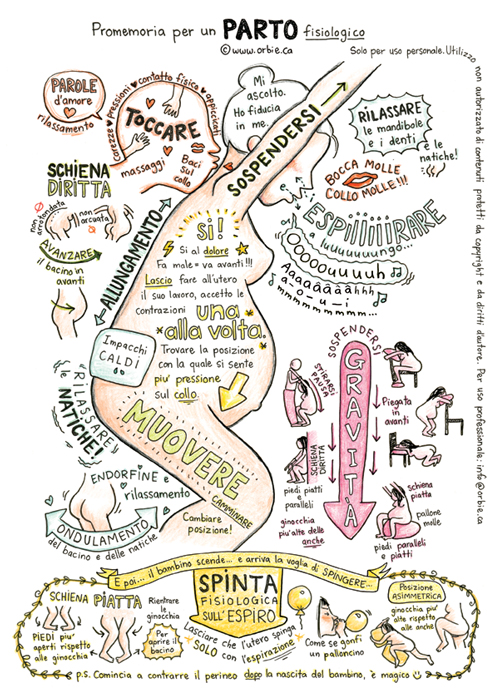 Promemoria per un PARTO fisiologico
© www.orbie.ca
Solo per uso personale. Utilizzo
non autorizzato di contenuti protetti da copyright e da diritti d'autore. Per uso professionale: info@orbie.ca
PAROLE
d'amore
rilassamento
Carezze Pressioni contatto fisico appiccicati
TOCCARE
massaggi
Baci
sul
collo
Mi
ascolto.
Ho fiducia
in me.
SOSPENDERSI
RILASSARE
le mandibole
e i denti
e le
natiche!
BOCCA MOLLE
COLLO MOLLE!!!
SCHIENA
DIRITTA
non
arrotondata
non
arcuata
AVANZARE
il bacino in
avanti
ALLUNGAMENTO
ESPIIIIIIRARE
luuuuuuungo...
OOOOOuuuuuh
Aaaaââââââhhh
a-o-u-i
mmmmmmmm...
Sì!
Sì al dolore
Fa male = va avanti!!!
Lascio fare all'utero
il suo lavoro, accetto le
contrazioni una
alla volta.
Trovare la posizione
con la quale si sente
piu' pressione
sul collo.
Impacchi
CALDI
RILASSARE
le
NATICHE!
MUOVERE
CAMMINARE
Cambiare
posizione!
ENDORFINE e
rilassamento
ONDULAMENTO
del bacino e delle natiche
SOSPENDERSI
GRAVITÀ
STIRARSI
PAUSA
Piegata
in
avanti
SCHIENA
DIRITTA
piedi piatti
e
paralleli
ginocchia
piu' alte delle
anche
schiena
piatta
pallone
molle
piedi paralleli
e piatti
E poi... il bambino scende... e arriva la voglia di SPINGERE...
SPINTA
FISIOLOGICA
SULL'ESPIRO
SCHIENA PIATTA
PIEDI piu'
aperti rispetto
alle ginocchia
Rientrare
le
ginocchia
Per
aprire il
bacino
Lasciare che l'utero spinga
SOLO con l'espirazione
Come se gonfi
un palloncino
Posizione
ASIMMETRICA
ginocchia piu'
alte rispetto
alle anche
p.s. Comincia a contrarre il perineo dopo la nascita del bambino, è magico